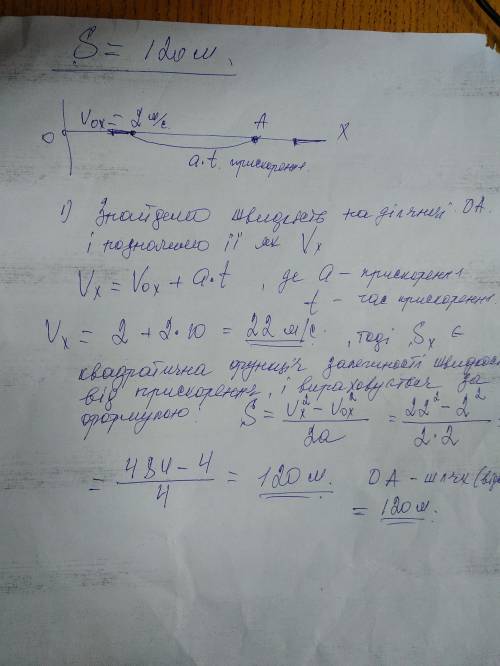 S = 120 м.
V₀ₓ = 2 м/с. A
O X
a·t прискорення
1) Знайдемо швидкість на ділянці OA
і позначимо її як Vₓ
Vₓ = V₀ₓ + a·t , де a – прискорення
t – час прискорення.
Vₓ = 2 + 2·10 = 22 м/с. , тоді Sₓ є
квадратична функція залежності
від прискорення, і вираховується за
формулою: S = (Vₓ² – V₀ₓ²)/2a = (22² – 2²)/(2·2)
= (484 – 4)/4 = 120 м. OA – шлях
= 120 м.